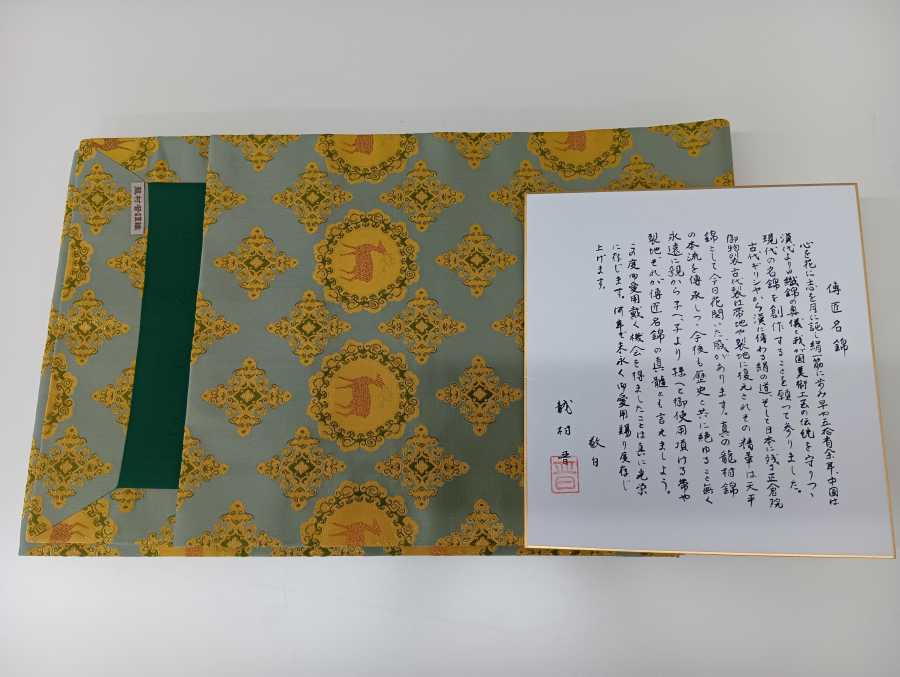 傳匠名錦
心を花に志を月に託し絹一筋に歩み早や五拾有余年、中国は
漢代よりの織錦の奥儀と我が国美術工芸の伝統を守りつゝ
現代の名錦を創作することを願って参りました。
古代ギリシヤから漢に傳わる絹の道そして日本に残る正倉院
御物裂古代裂は帯地や裂地に復元されその精華は天平
錦として今日花開いた感があります。真の龍村錦
の本流を傳承しつゝ今後も歴史と共に絶ゆること無く
永遠に親から子へ、子より孫へと御使用頂ける帯や
裂地それが傳匠名錦の真髄とも言えましよう。
この度御愛用戴く機会を得ましたことは真に光栄
に存じます。何卒末永く御愛用賜り度存じ
上げます。
敬白
龍村晋
晋
龍村晋謹織